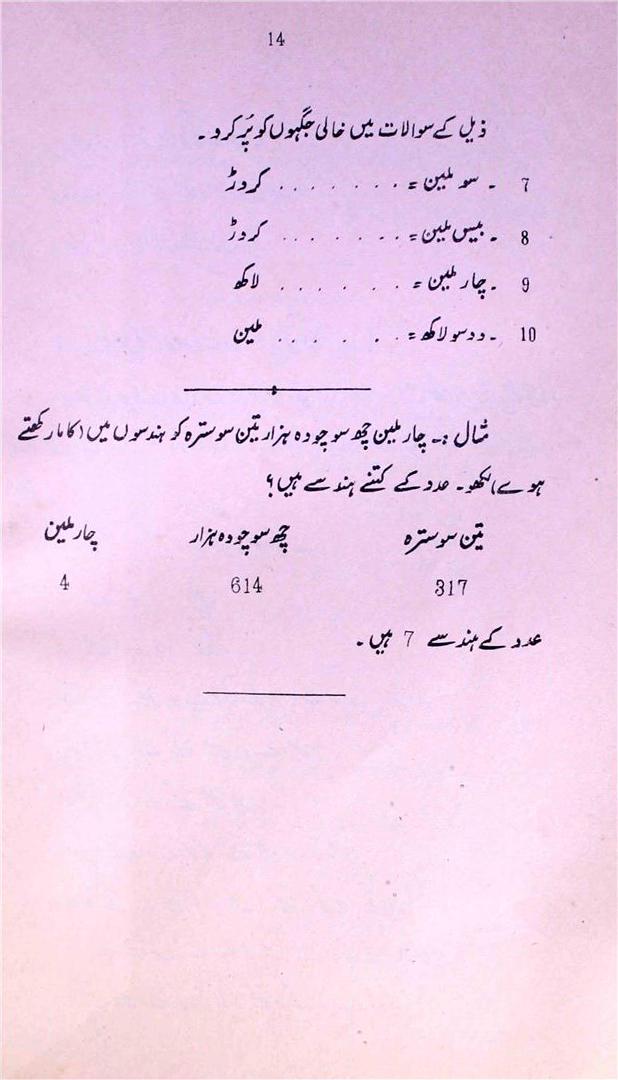 14
ذیل کے سوالات میں خالی جگہوں کو پُر کرو ۔
7 ۔ سو ملین = . . . . . . . کروڑ
8 ۔ بیس ملین = . . . . . . . کروڑ
9 ۔ چار ملین = . . . . . . لاکھ
10 ۔ دو سو لاکھ = . . . . . . ملین
مثال :۔ چار ملین چھ سو چودہ ہزار تین سو سترہ کو ہندسوں میں (کاما رکھتے
ہوے) لکھو ۔ عدد کے کتنے ہندسے ہیں؟
تین سو سترہ چھ سو چودہ ہزار چار ملین
317 614 4
عدد کے ہندسے 7 ہیں ۔